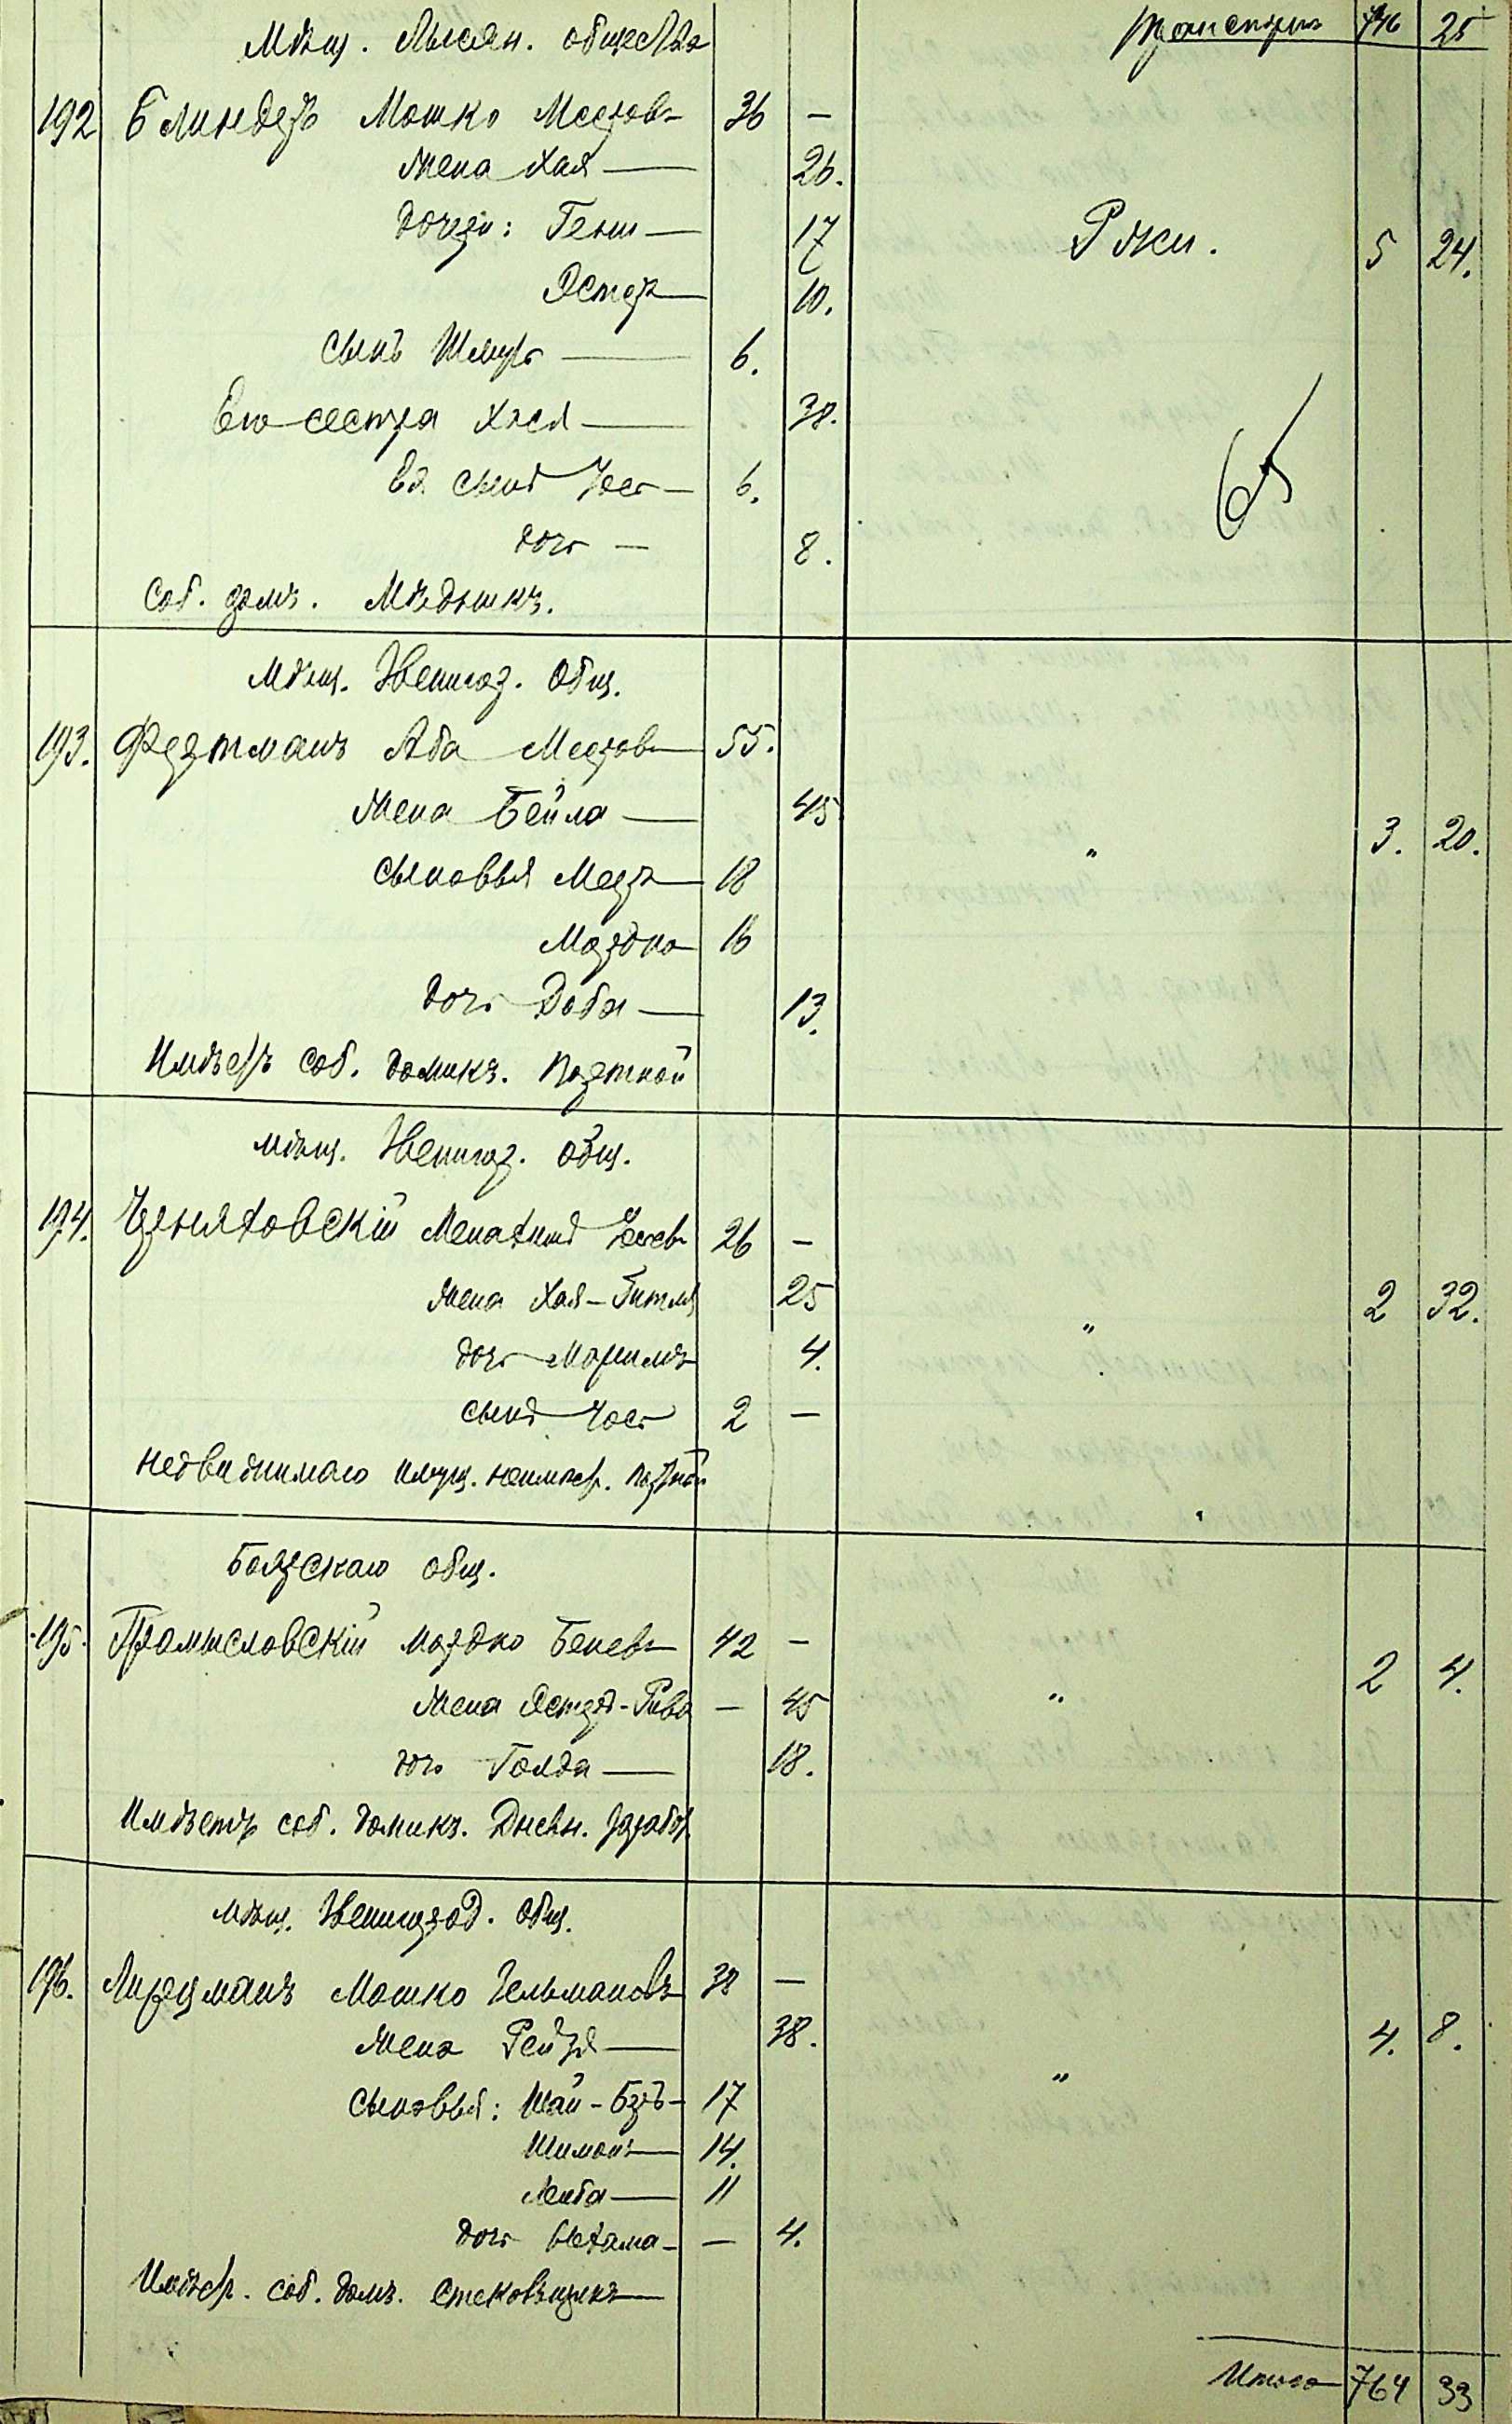 Мѣщ. Лысян. общества Транспорт 746 25
192 Блиндеръ Мошко Мееров 36 –
жена Хая 26.
дочери: Геня 17 Ржи. 5 24.
Эстер 10.
сынъ Шмуль 6.
Его сестра Хася 38.
Ея сынъ Іось 6.
дочь – 8.
Соб. домъ. Мѣдникъ.
Мѣщ. Звенигор. Общ.
193. Фертманъ Аба Мееров 55.
жена Бейла 45 „ 3. 20.
сыновья Меер 18
Мордко 16
дочь Доба 13.
Имѣетъ соб. домикъ. Портной
мѣщ. Звенигор. общ.
194. Черняховскій Менахимъ Іосев 26 –
жена Хая-Гитля 25 „ 2 32.
дочь 4.
сынъ Іось 2 –
недвижимаго имущ. неимѣет. портной
Боярскаго общ.
195. Промысловскій Мордко Бенев 42 –
жена Эстер-Рива – 45 „ 2 4.
дочь Голда 18.
Имѣетъ соб. домикъ. Дневн. заработ.
мѣщ. Звенигород. общ.
196. Лирцманъ Мошко Гельмановъ 38 –
жена Рейзя 38. „ 4. 8.
сыновья: Шай-Беръ 17
Шимонъ 14.
Лейба 11
дочь Нехама – 4.
Имѣет. соб. домъ. Стекольщикъ
Итого 764 33